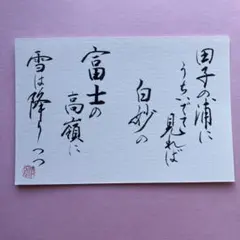 田子の浦に
うちいでて見れば
白妙の
富士の
高嶺に
雪は降りつつ